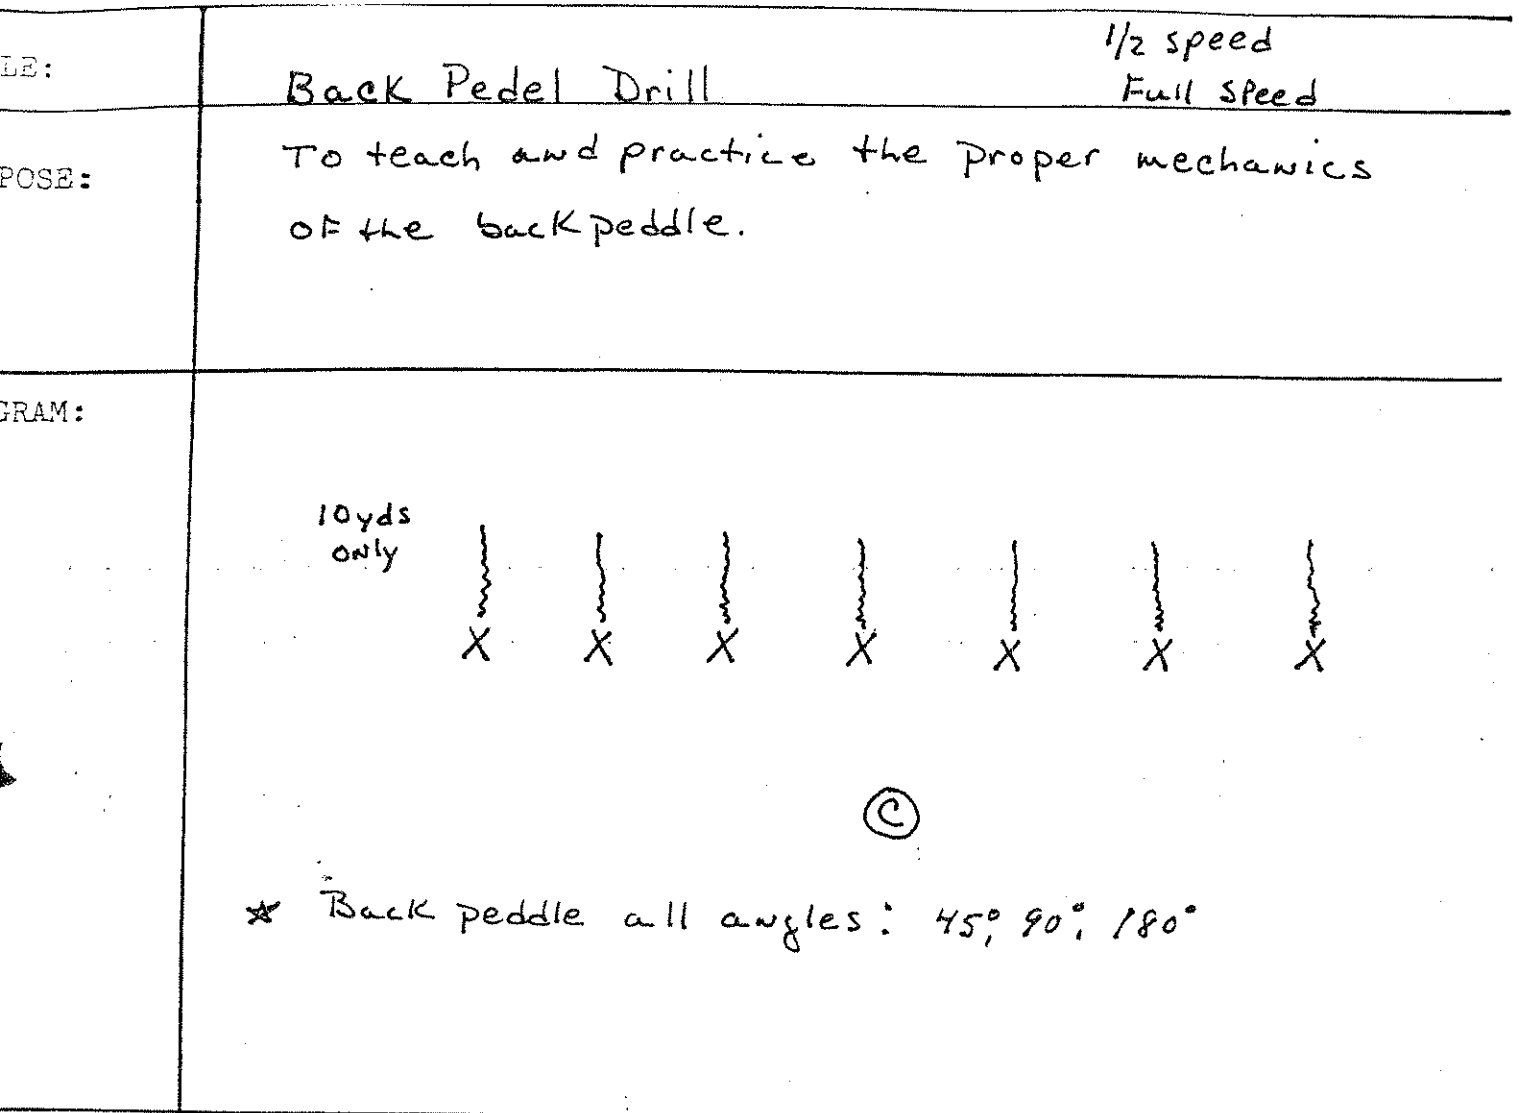 1/2 speed
LE: Back Pedel Drill Full Speed
POSE: To teach and practice the proper mechanics
of the backpeddle.
GRAM:
10yds
only
X X X X X X X
C
* Back peddle all angles: 45°, 90°, 180°